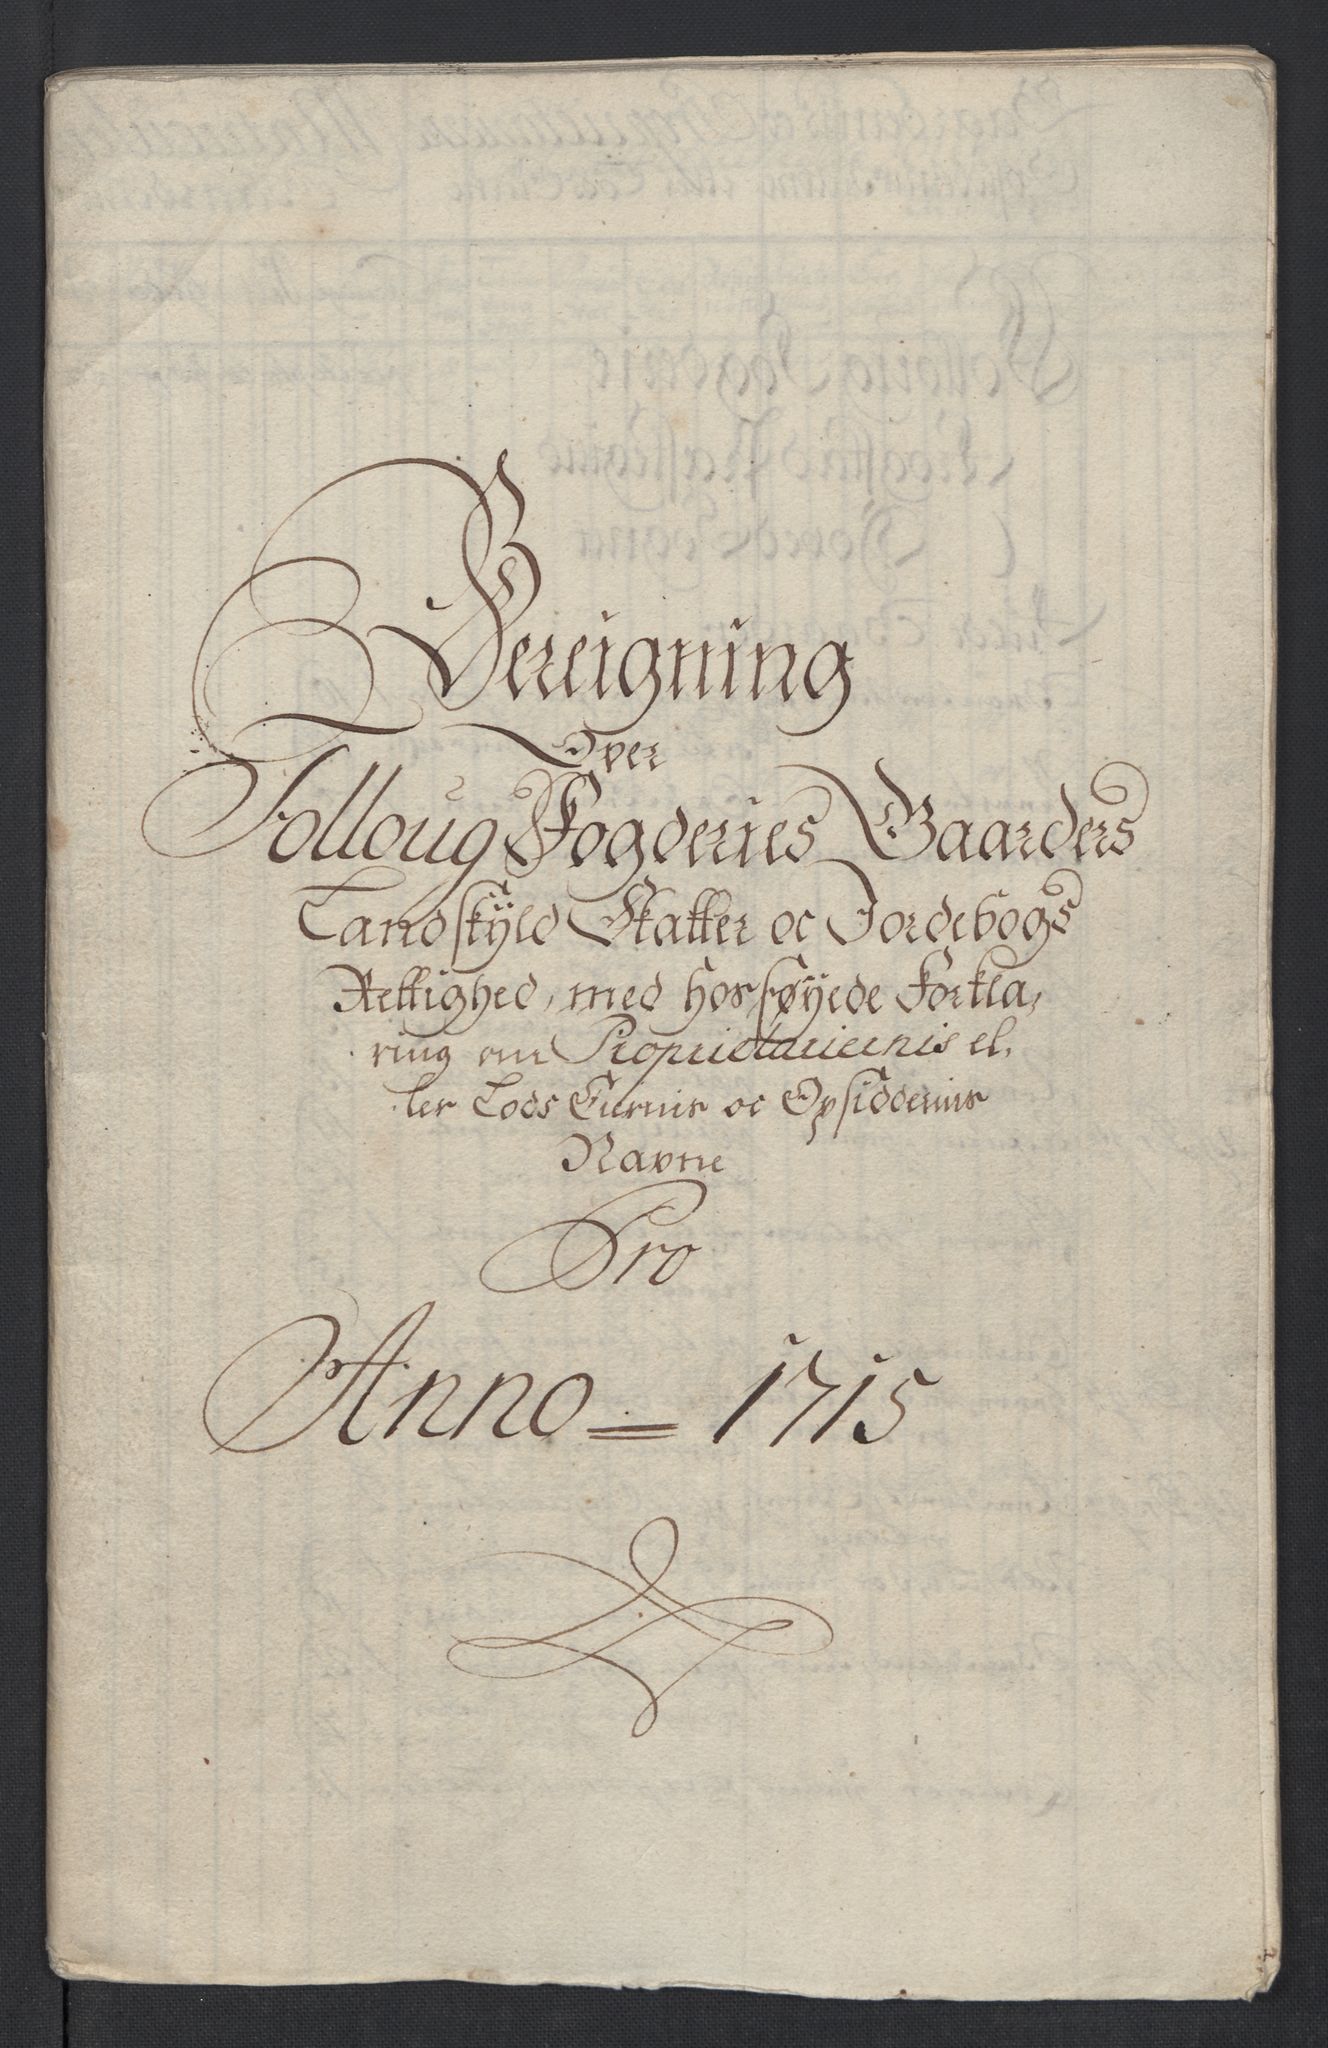 Bereigning
Over
Folloug Fogderies Gaarders
Landskÿld Skatter oc Jordebogs
Rettighed, med hosføyede Forkla,
ring om Proprietariernis el,
ler Lods Eiernis oc Opsiddernis
Navne
Pro
Anno = 1715